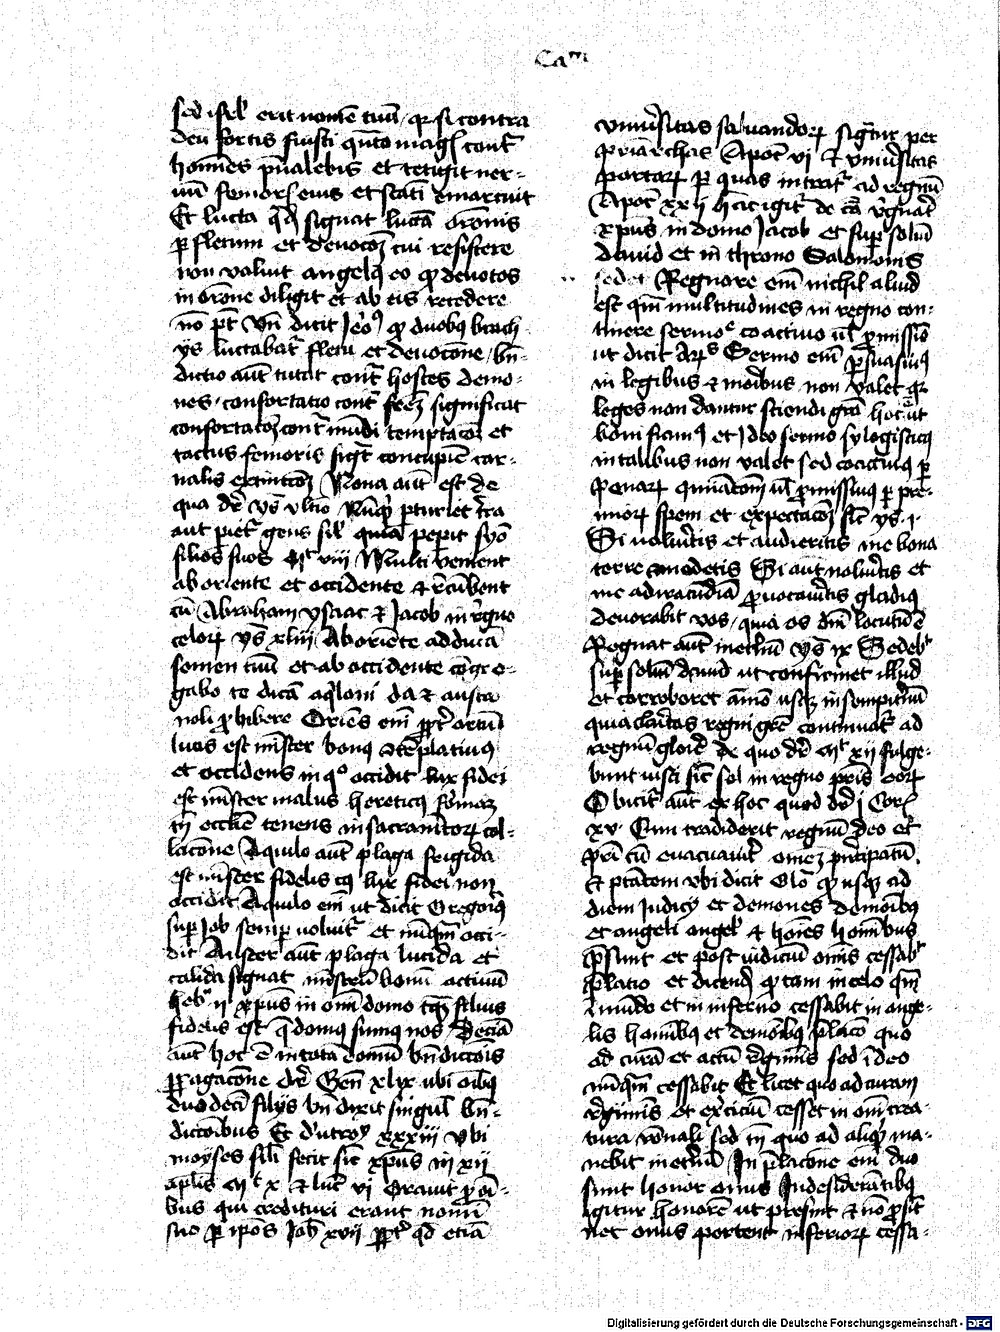 Cam
sed isrl erit nomē tuū qr si contra
deū fortis fuisti quāto magis cont̄
homines p̄ualebis et tetigit ner-
uū femoris eius et statī emarcuit
Et lucta signat luctā orōnis
p fletum et deuocōȝ cui resistere
non valuit angelꝰ eo qđ deuotos
in orōne diligit et ab eis recedere
nō pt Vn̄ dicit Jeroꝰ qđ duobꝫ brach-
ijs luctabat̄ fletu et deuocōne bn̄-
dictio aut̄ tutat cont̄ hostes demo-
nes confortatio cont̄ significat
confortacōȝ cont̄ mūdi temptacōȝ et
tactus femoris sigt̄ concupiē car-
nalis extinccōȝ Nona aut̄ est de
qua dr̄ ys vltio Nūqđ pturiet t̄ra
aut piet̄ gens sil quia pepit syō
filios suos Mt viii Multi venient
ab oriente et occidente & rēcūbent
cū Abraham ysaac & Jacob in regno
celoꝝ ys xliii Ab oriēte adducā
semen tuū et ab occidente cōgre-
gabo te dicā aqloni da & austro
noli phibere Oriēs em̄ ppt̄ ortū
lucis est mīster bonꝰ cōtēplatiuꝰ
et occidens in qo occidit lux fidei
est mīster malus hereticꝰ
tn̄ ecclīe tenens in sacramētoꝝ col-
lacōne Aquilo aut̄ plaga frigida
est mīster fidelis cꝰ lux fidei non
occidit Aquilo em̄ ut dicit Gregoriꝰ
sup Job semp voluit̄ et nūqm̄ occi-
dit Auster aut̄ plaga lucida et
calida signat mīstrū bonū actiuū
heb ii xp̄us in om̄i domo tqȝ filius
fidelis est q̄ domus sumꝰ nos Decīa
aut̄ hoc ē in totā domū bn̄dictōis
ppagacōne dr̄ Gen̄ xlix ubi oībꝫ
duodecī filijs bn̄dixit singul bn̄-
dictōibus Et deutroy xxxiii Vbi
moyses silr̄ fecit sic xp̄us in xii
aplis Mt x & luc vi Orauit p oī-
bus qui credituri erant nomī
suo p ipos Joh xvii ppt̄ qđ etiā
vniūsitas saluandoꝝ sigt̄ur per
priarchas Apoc̄ vi & vniūsitas
portarꝝ p quas intrat̄ ad regnū
Apoc̄ xxii hic igit̄ de cā regnat̄
xp̄us in domo Jacob et sup soliū
dauid et in throno Salomonis
sedet Regnare em̄ nichil aliud
est qm̄ multitudines in regno con-
tinere sermoe coactiuo ul pmissiō
ut dicit Ars Sermo em̄ psuasiuꝰ
in legibus & moribus non valet qr
leges non dantur sciendi grā hoc ut
boni fiamꝰ et ideo sermo sylogisticꝰ
in talibus non valet sed coactiuꝰ p
penarꝝ cominacōem ul pmissiuꝰ p pre-
mioꝝ spem et expectacōȝ sic ys i
Si uolueritis et audieritis me bona
terre comedetis Si aut nolueritis et
me ad iracūdiā puocaūitis gladiꝰ
deuorabit vos quia os dn̄i locutū ē
Regnat aut̄ in et̄nū ys ix Sedebt
sup soliū dauid ut confirmet illud
et corroboret amō usqȝ in sempit̄nū
quia claritas regni grē continuat̄ ad
regnū glorie de quo dr̄ Mt xii fulge-
bunt iusti sic sol in regno pris eoꝝ
Obicit̄ aut̄ ex hoc quod dr̄ i Cor
xv Cum tradiderit regnū deo et
pri cū euacuauit omēȝ pncipatū
& ptātem vbi dicit Glo qđ usqȝ ad
diem Judicij et demones demonibꝫ
et angeli angel & hoīes hoīnibus
psunt et post iudiciū om̄is cessabt
placio et dicendꝰ qđ tam in celo qm̄
ī mūdo et in inferno cessabit in ange-
lis hominibꝫ et demonibꝫ placō quo
ad curā et actū regiminis sed ideo
nūqm̄ cessabit Et licet quo ad curam
regiminis et exerciciū cesset in om̄i crea-
tura rōnali sed tn̄ quo ad aliqđ ma-
nebit in et̄nū In placōne em̄ duo
sunt honor onus Indesiderātibꝫ
igitur honorē ut presint & nō prosīt
nec onus portent inferioꝝ cessa-
Digitalisierung gefördert durch die Deutsche Forschungsgemeinschaft - DFG